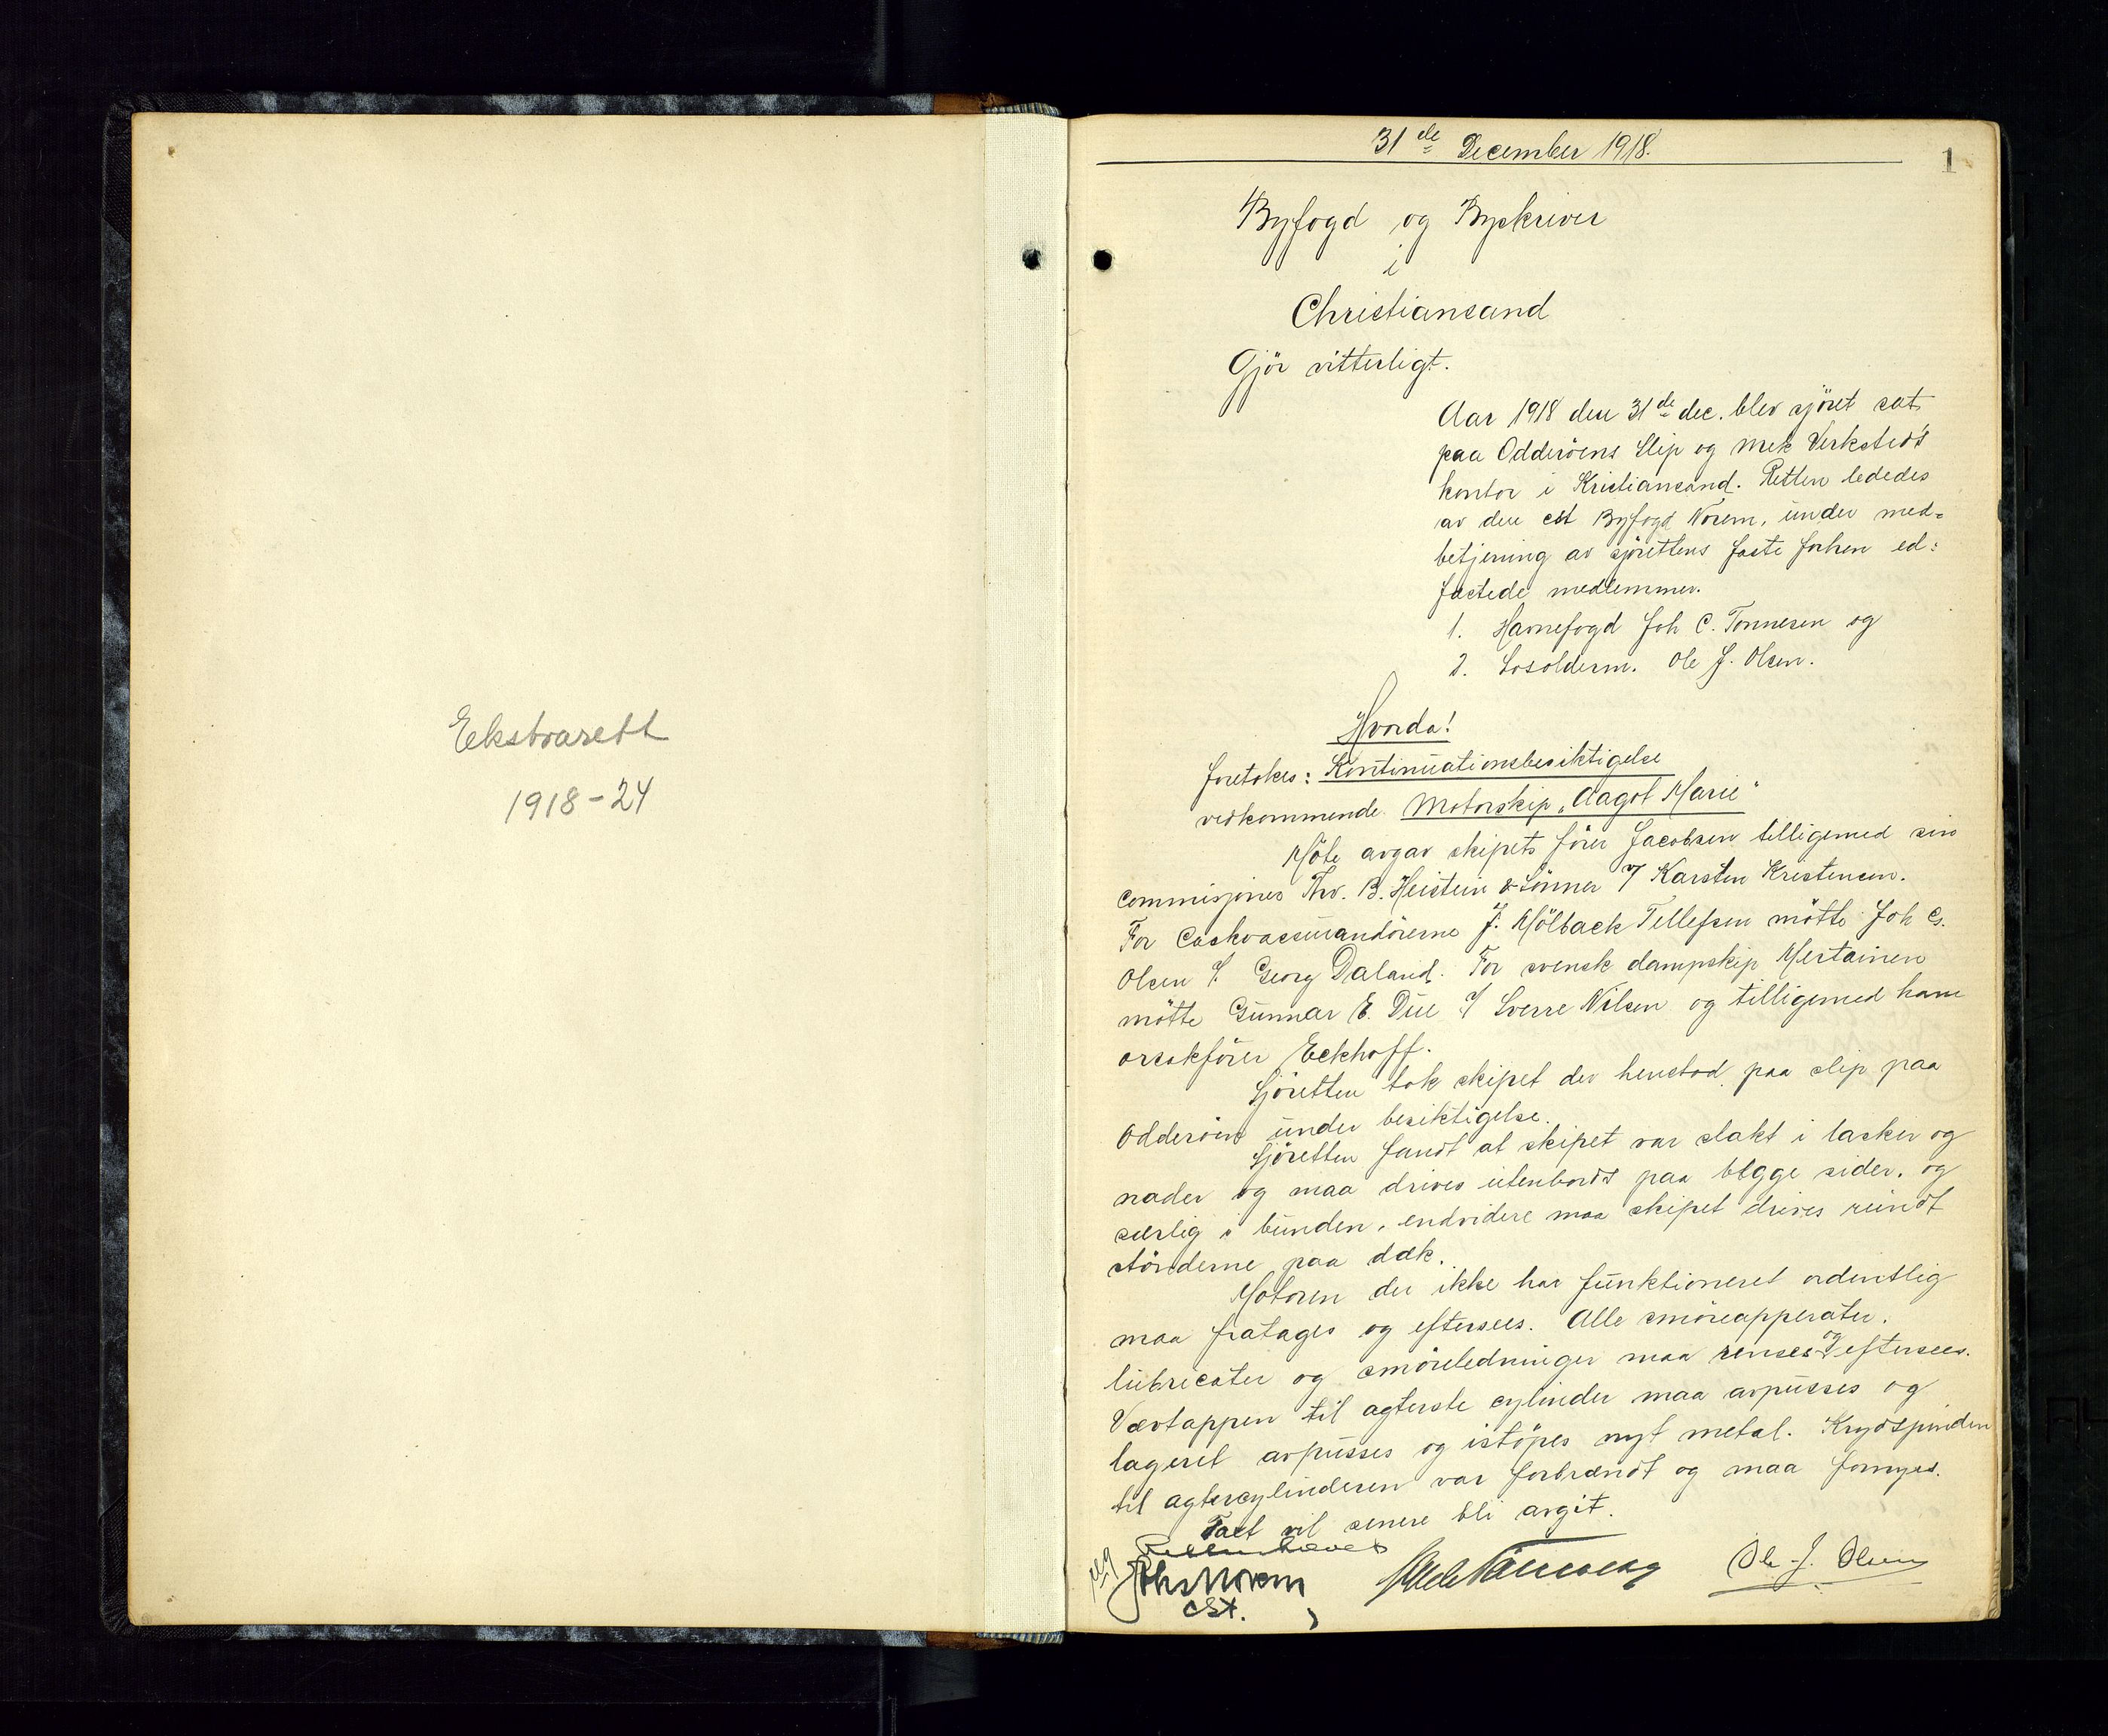 Ekstrarett
1918-24
31de December 1918.
1
Byfogd og Byskriver
i
Christiansand
Gjör vitterligt.
Aar 1918 den 31de dec. blev sjöret sat
paa Odderöens Slip og Mek Verksted's
kontor i Kristiansand. Retten lededes
av den cst Byfogd Norem, under med=
betjening av sjörettens faste forhen ed=
fæstede medlemmer.
1. Havnefogd Joh C. Tönnesen og
2. Losolderm. Ole J. Olsen.
Hvorda!
foretokes: Kontinuationsbesiktigelse
vedkommende Motorskip "Aagot Marie"
Möte avgav skipets förer Jacobsen tilligemed sin
commisjonær Thv. B. Heistein & Sönner v/ Karsten Kristensen.
For Caskoassurandörerne J. Mölback Tellefsen mötte Joh G.
Olsen f. Georg Daland. For svensk dampskip Mertainen
mötte Gunnar E. Due v/ Sverre Nilsen og tilligemed ham
orsakförer Eckhoff.
Sjöretten tok skipet der henstod paa slip paa
Odderöen under besiktigelse.
Sjöretten fandt at skipet var slakt i lasker og
nader og maa drives utenbords paa begge sider, og
særlig i bunden, endvidere maa skipet drives rundt
stönderne paa dæk.
Motoren der ikke har funktioneret ordentlig
maa fratages og eftersees. Alle smöreapperater,
lubricater og smöreledninger maa renses og eftersees.
Vevtappen til agterste cylinder maa avpusses og
lageret avpusses og istöpes nyt metal. Krydspinden
til agtercylinderen var forbrændt og maa fornyes.
Taxt vil senere bli avgit.
Retten hævet
Joh Norem
cst.
Joh C Tönnesen
Ole J. Olsen